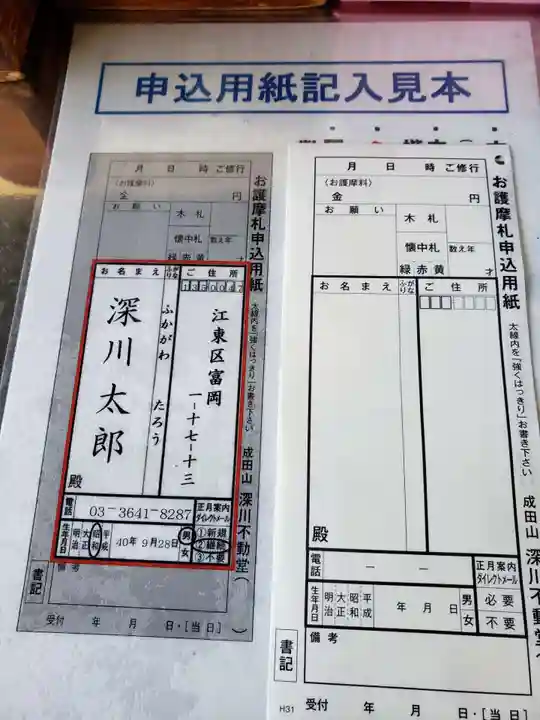 申込用紙記入見本
お護摩札申込用紙
太線内を「強くはっきり」お書き下さい
成田山 深川不動堂
月 日 時 ご修行
(お護摩料)
金 円
お願い
木札
懐中札
緑赤黄
数え年
才
ご住所
1350047
江東区富岡
一-十七-十三
ふりがな
ふかがわ たろう
お名まえ
深川太郎
殿
電話
03-3641-8287
正月案内
ダイレクトメール
生年月日
明治
大正
昭和
平成
40年 9月28日
男
女
①新規
②継続
③不要
書記
備考
受付 年 月 日・[当日]
お護摩札申込用紙
太線内を「強くはっきり」お書き下さい
成田山 深川不動堂
月 日 時 ご修行
(お護摩料)
金 円
お願い
木札
懐中札
緑赤黄
数え年
才
ご住所
ふりがな
お名まえ
殿
電話
- -
正月案内
ダイレクトメール
生年月日
明治
大正
昭和
平成
年 月 日
男
女
必要
不要
書記
備考
H31
受付 年 月 日・[当日]